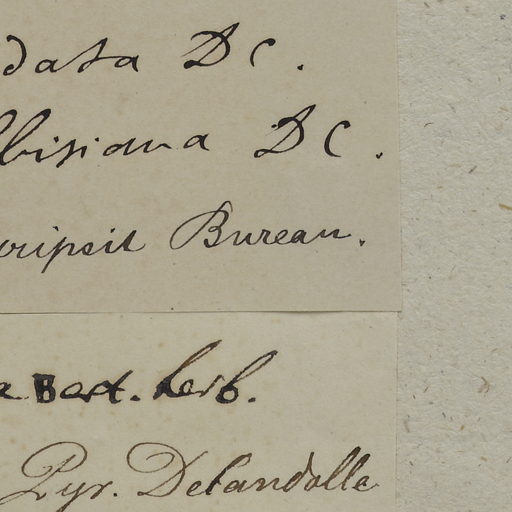 data DC.
bisiana DC.
ripsit Bureau.
a Bert. herb.
Pyr. Decandolle